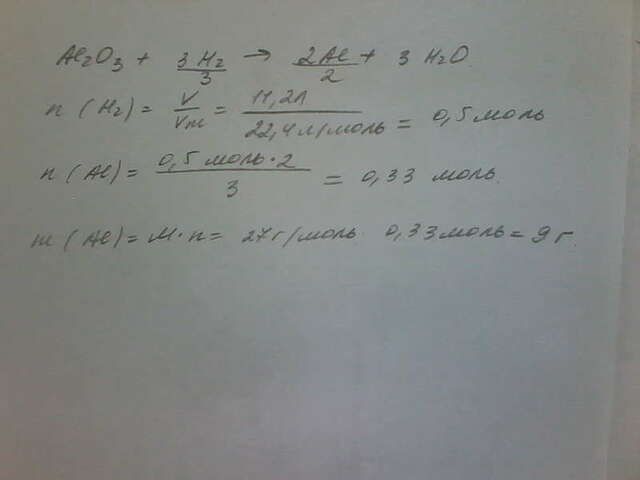 Al₂O₃ + 3H₂/3 → 2Al/2 + 3H₂O
n(H₂) = V/Vm = 11,2л/22,4л/моль = 0,5 моль
n(Al) = 0,5 моль·2/3 = 0,33 моль.
m(Al) = M·n = 27г/моль· 0,33моль = 9г.